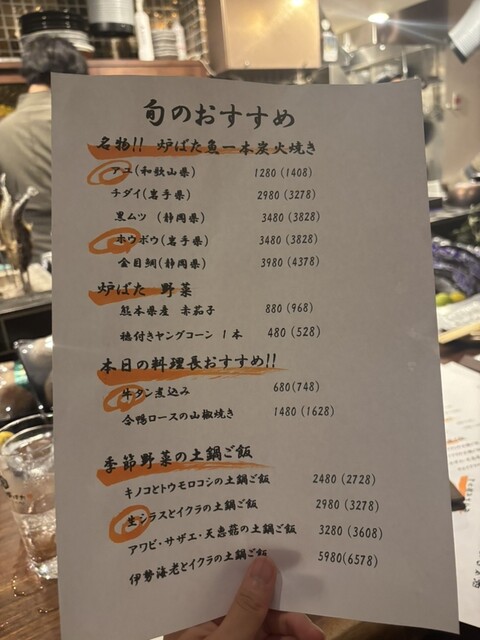 旬のおすすめ
名物!! 炉ばた魚一本炭火焼き
アユ(和歌山県) 1280(1408)
チダイ(岩手県) 2980(3278)
黒ムツ(静岡県) 3480(3828)
ホウボウ(岩手県) 3480(3828)
金目鯛(静岡県) 3980(4378)
炉ばた 野菜
熊本県産 赤茄子 880(968)
穂付きヤングコーン 1本 480(528)
本日の料理長おすすめ!!
牛タン煮込み 680(748)
合鴨ロースの山椒焼き 1480(1628)
季節野菜の土鍋ご飯
キノコとトウモロコシの土鍋ご飯 2480(2728)
生シラスとイクラの土鍋ご飯 2980(3278)
アワビ・サザエ・天恵菇の土鍋ご飯 3280(3608)
伊勢海老とイクラの土鍋ご飯 5980(6578)